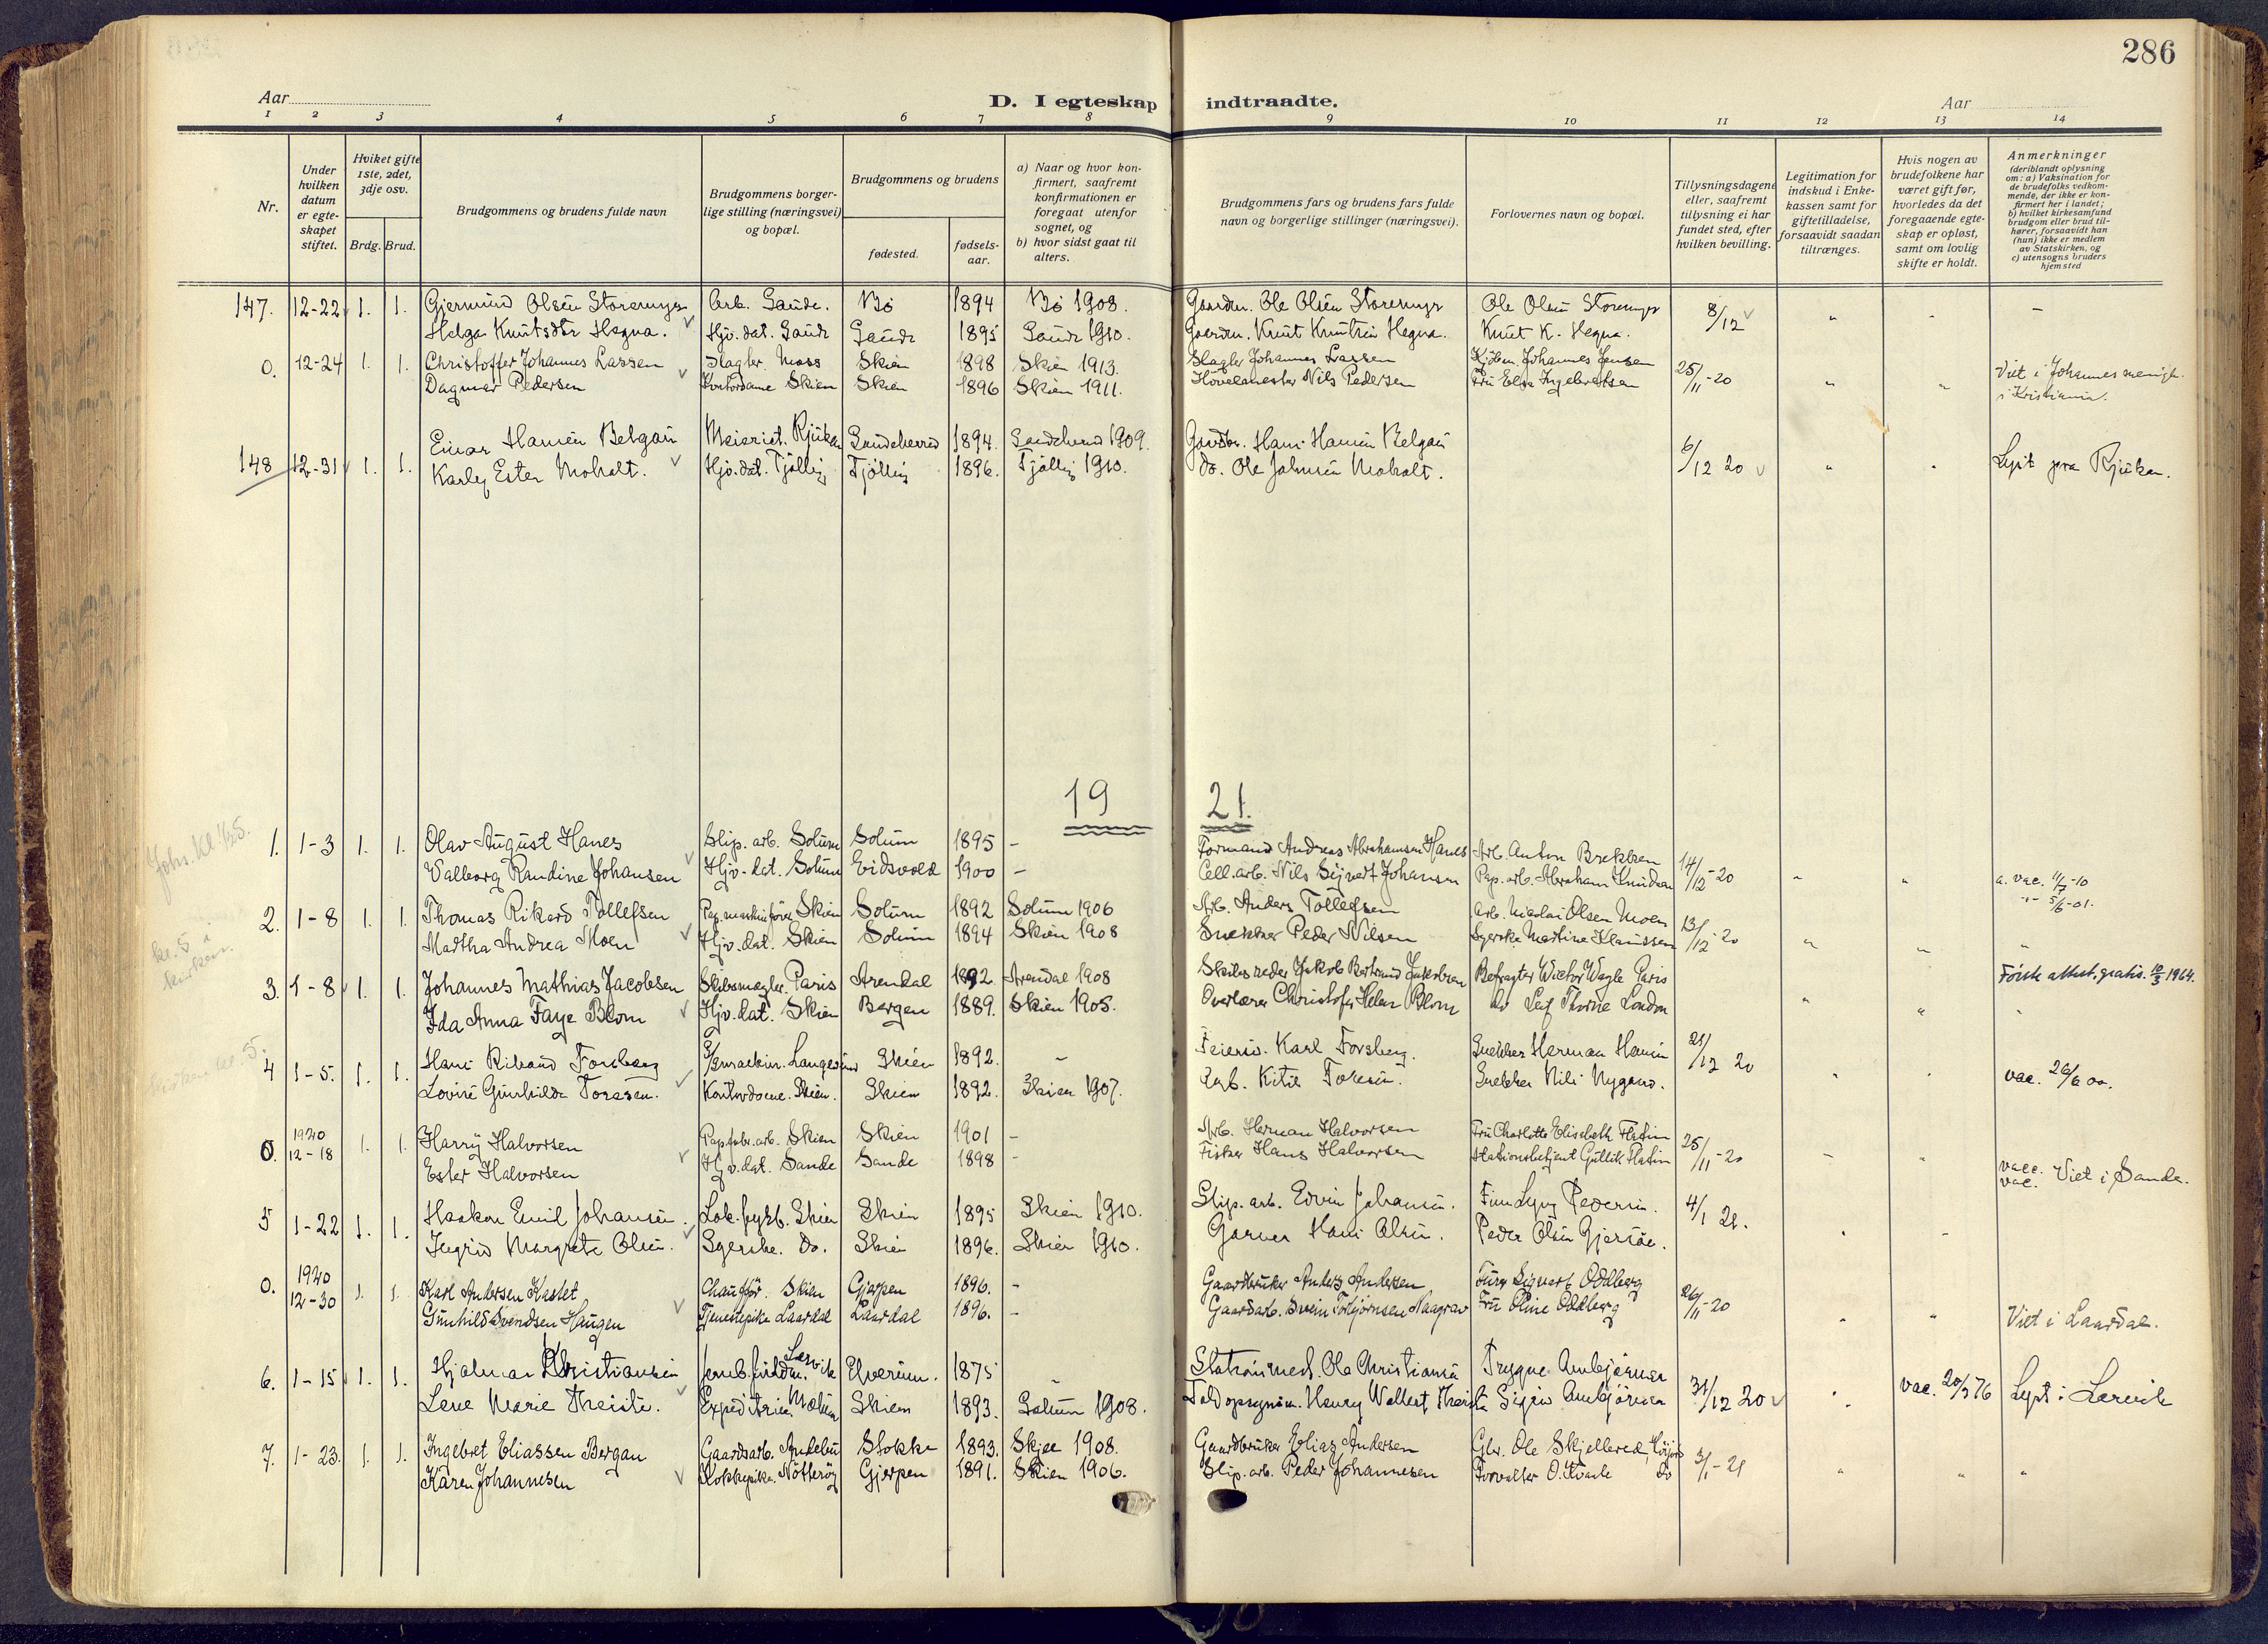 286
Aar
D. I egteskap indtraadte.
Aar
1 2 3 4 5 6 7 8 9 10 11 12 13 14
Nr.
Under hvilken datum er egteskapet stiftet.
Hviket gifte 1ste, 2det, 3dje osv.
Brdg. Brud.
Brudgommens og brudens fulde navn
Brudgommens borgerlige stilling (næringsvei) og bopæl.
Brudgommens og brudens
fødested.
fødselsaar.
a) Naar og hvor konfirmert, saafremt konfirmationen er foregaat utenfor sognet, og
b) hvor sidst gaat til alters.
Brudgommens fars og brudens fars fulde navn og borgerlige stillinger (næringsvei).
Forlovernes navn og bopæl.
Tillysningsdagene eller, saafremt tillysning ei har fundet sted, efter hvilken bevilling.
Legitimation for indskud i Enkekassen samt for giftetilladelse, forsaavidt saadan tiltrænges.
Hvis nogen av brudefolkene har været gift før, hvorledes da det foregaaende egteskap er opløst, samt om lovlig skifte er holdt.
Anmerkninger (deriblandt oplysning om: a) Vaksination for de brudefolks vedkommende, der ikke er konfirmert her i landet; b) hvilket kirkesamfund brudgom eller brud tilhører, forsaavidt han (hun) ikke er medlem av Statskirken, og c) utensogns bruders hjemsted
147. 12-22 1. 1. Gjermund Olsen Storemyr Arb. Saude. Bø 1894 Bø 1908. Gaardm. Ole Olsen Storemyr Ole Olsen Storemyr 8/12 " " –
Helga Knutsdtr Hegna. Hjv. dat. Saude Saude 1895 Saude 1910. Gaardm. Knut Knutsen Hegna. Knut K. Hegna.
0. 12-24 1. 1. Christoffer Johannes Lassen Slagter Moss Skien 1898 Skien 1913. Slagter Johannes Lassen Kjøbm. Johannes Jensen 25/11-20 " " Viet i Johannes menigh.
Dagmar Pedersen Kontordame Skien Skien 1896 Skien 1911. Høvelmester Nils Pedersen Fru Elsa Ingebretsen i Kristiania.
148 12-31 1. 1. Einar Hansen Belgau Meierist. Rjukan Saudeherred 1894. Saudeherred 1909. Gaardbr. Hans Hansen Belgau 6/12 20 " " Lyst fra Rjukan.
Karly Ester Moholt. Hjv. dat. Tjølling Tjølling 1896. Tjølling 1910. Do. Ole Johnsen Moholt.
19 21.
Johs. Kl. 1/2 5.
1. 1-3 1. 1. Olav August Hanes Slip. arb. Solum Solum 1895 – Formand Andreas Abrahamsen Hanes Arb. Anton Brekken 14/12-20 " " a. vac. 11/7-10
Valborg Randine Johansen Hjv. dat. Solum Eidsvold 1900 – Cell. arb. Nils Sigvart Johansen Pap. arb. Abraham Knudsen -"- 5/6-01.
kl. 5 i kirken.
2. 1-8 1. 1. Thomas Rikard Tollefsen Pap. maskinfører Skien Solum 1892 Solum 1906 Arb. Anders Tollefsen Arb. Nikolai Olsen Moen 13/12-20 " " "
Martha Andrea Moen Hjv. dat. Skien Solum 1894 Skien 1908 Snekker Peder Nilsen Syerske Martine Klaussen
3. 1-8 1. 1. Johannes Mathias Jacobsen Skibsmegler. Paris Arendal 1892. Arendal 1908 Skibsreder Jakob Bertrand Jakobsen Befragter Wictor Wagle Paris " " Første attest. gratis. 10/3 1964.
Ida Anna Faye Blom Hjv. dat. Skien Bergen 1889. Skien 1905. Overlærer Christofer Blom do Leif Thorne London
4 1-5. 1. 1. Hans Rikard Forsberg Langesund Skien 1892. – Feierm. Karl Forsberg. Snekker Herman Hansen 21/12 20 " " vac. 26/6 00.
Lovise Gunhilda Toresen. Kontordame. Skien. Skien 1892. Skien 1907. Arb. Kitil Toresen. Snekker Nils Nygaard.
0. 1920 12-18 1. 1. Harry Halvorsen Pap.fabr. arb. Skien Skien 1901 – Arb. Herman Halvorsen Fru Charlotte Elisabeth Flatin 25/11-20 " " vacc. Viet i Sande.
Ester Halvorsen Hjv. dat. Sande Sande 1898 – Fisker Hans Halvorsen Stationsbetjent Gullik Flatin vac.
5 1-22 1. 1. Haakon Emil Johansen. Lok. fyrb. Skien Skien 1895 Skien 1910. Slip. arb. Edvin Johansen. Finn Lyng Pedersen. 4/1 21.
Ingrid Margrete Olsen. Syerske. Do. Skien 1896. Skien 1910. Garver Hans Olsen. Peder Olsen Gjersøe.
0. 1920 12-30 1. 1. Karl Andersen Kastet Chauffør. Skien Gjerpen 1896. – Gaardbruker Anders Andersen Sigvart Oddberg 26/11-20 " " Viet i Laardal.
Gunhild Svendsen Haugen Tjenestepike Laardal Laardal 1896. – Gaardarb. Svein Torbjørnsen Naagrav Fru Oline Oddberg
6. 1-15 1. 1. Hjalmar Kristiansen Larvik Elverum. 1875 " Ole Christiansen Trygve Ambjørnsen 31/12 20 " vac. 20/3 76 Lyst i Larvik
Lene Marie Theiste. Expeditrice. Skien 1893. Solum 1908. Toldopsynsm. Henry Wallert Theiste Sigrid Ambjørnsen
7. 1-23. 1. 1. Ingebret Eliassen Bergan Gaardsarb. Andebu Stokke 1893. Skjee 1908. Gaardbruker Elias Andersen Gbr. Ole Skjellered, 3/1-21 " " "
Karen Johannesen Kokkepike. Nøtterøy Gjerpen 1891. Skien 1906. Slip. arb. Peder Johannesen Forvalter O. Kvale Do